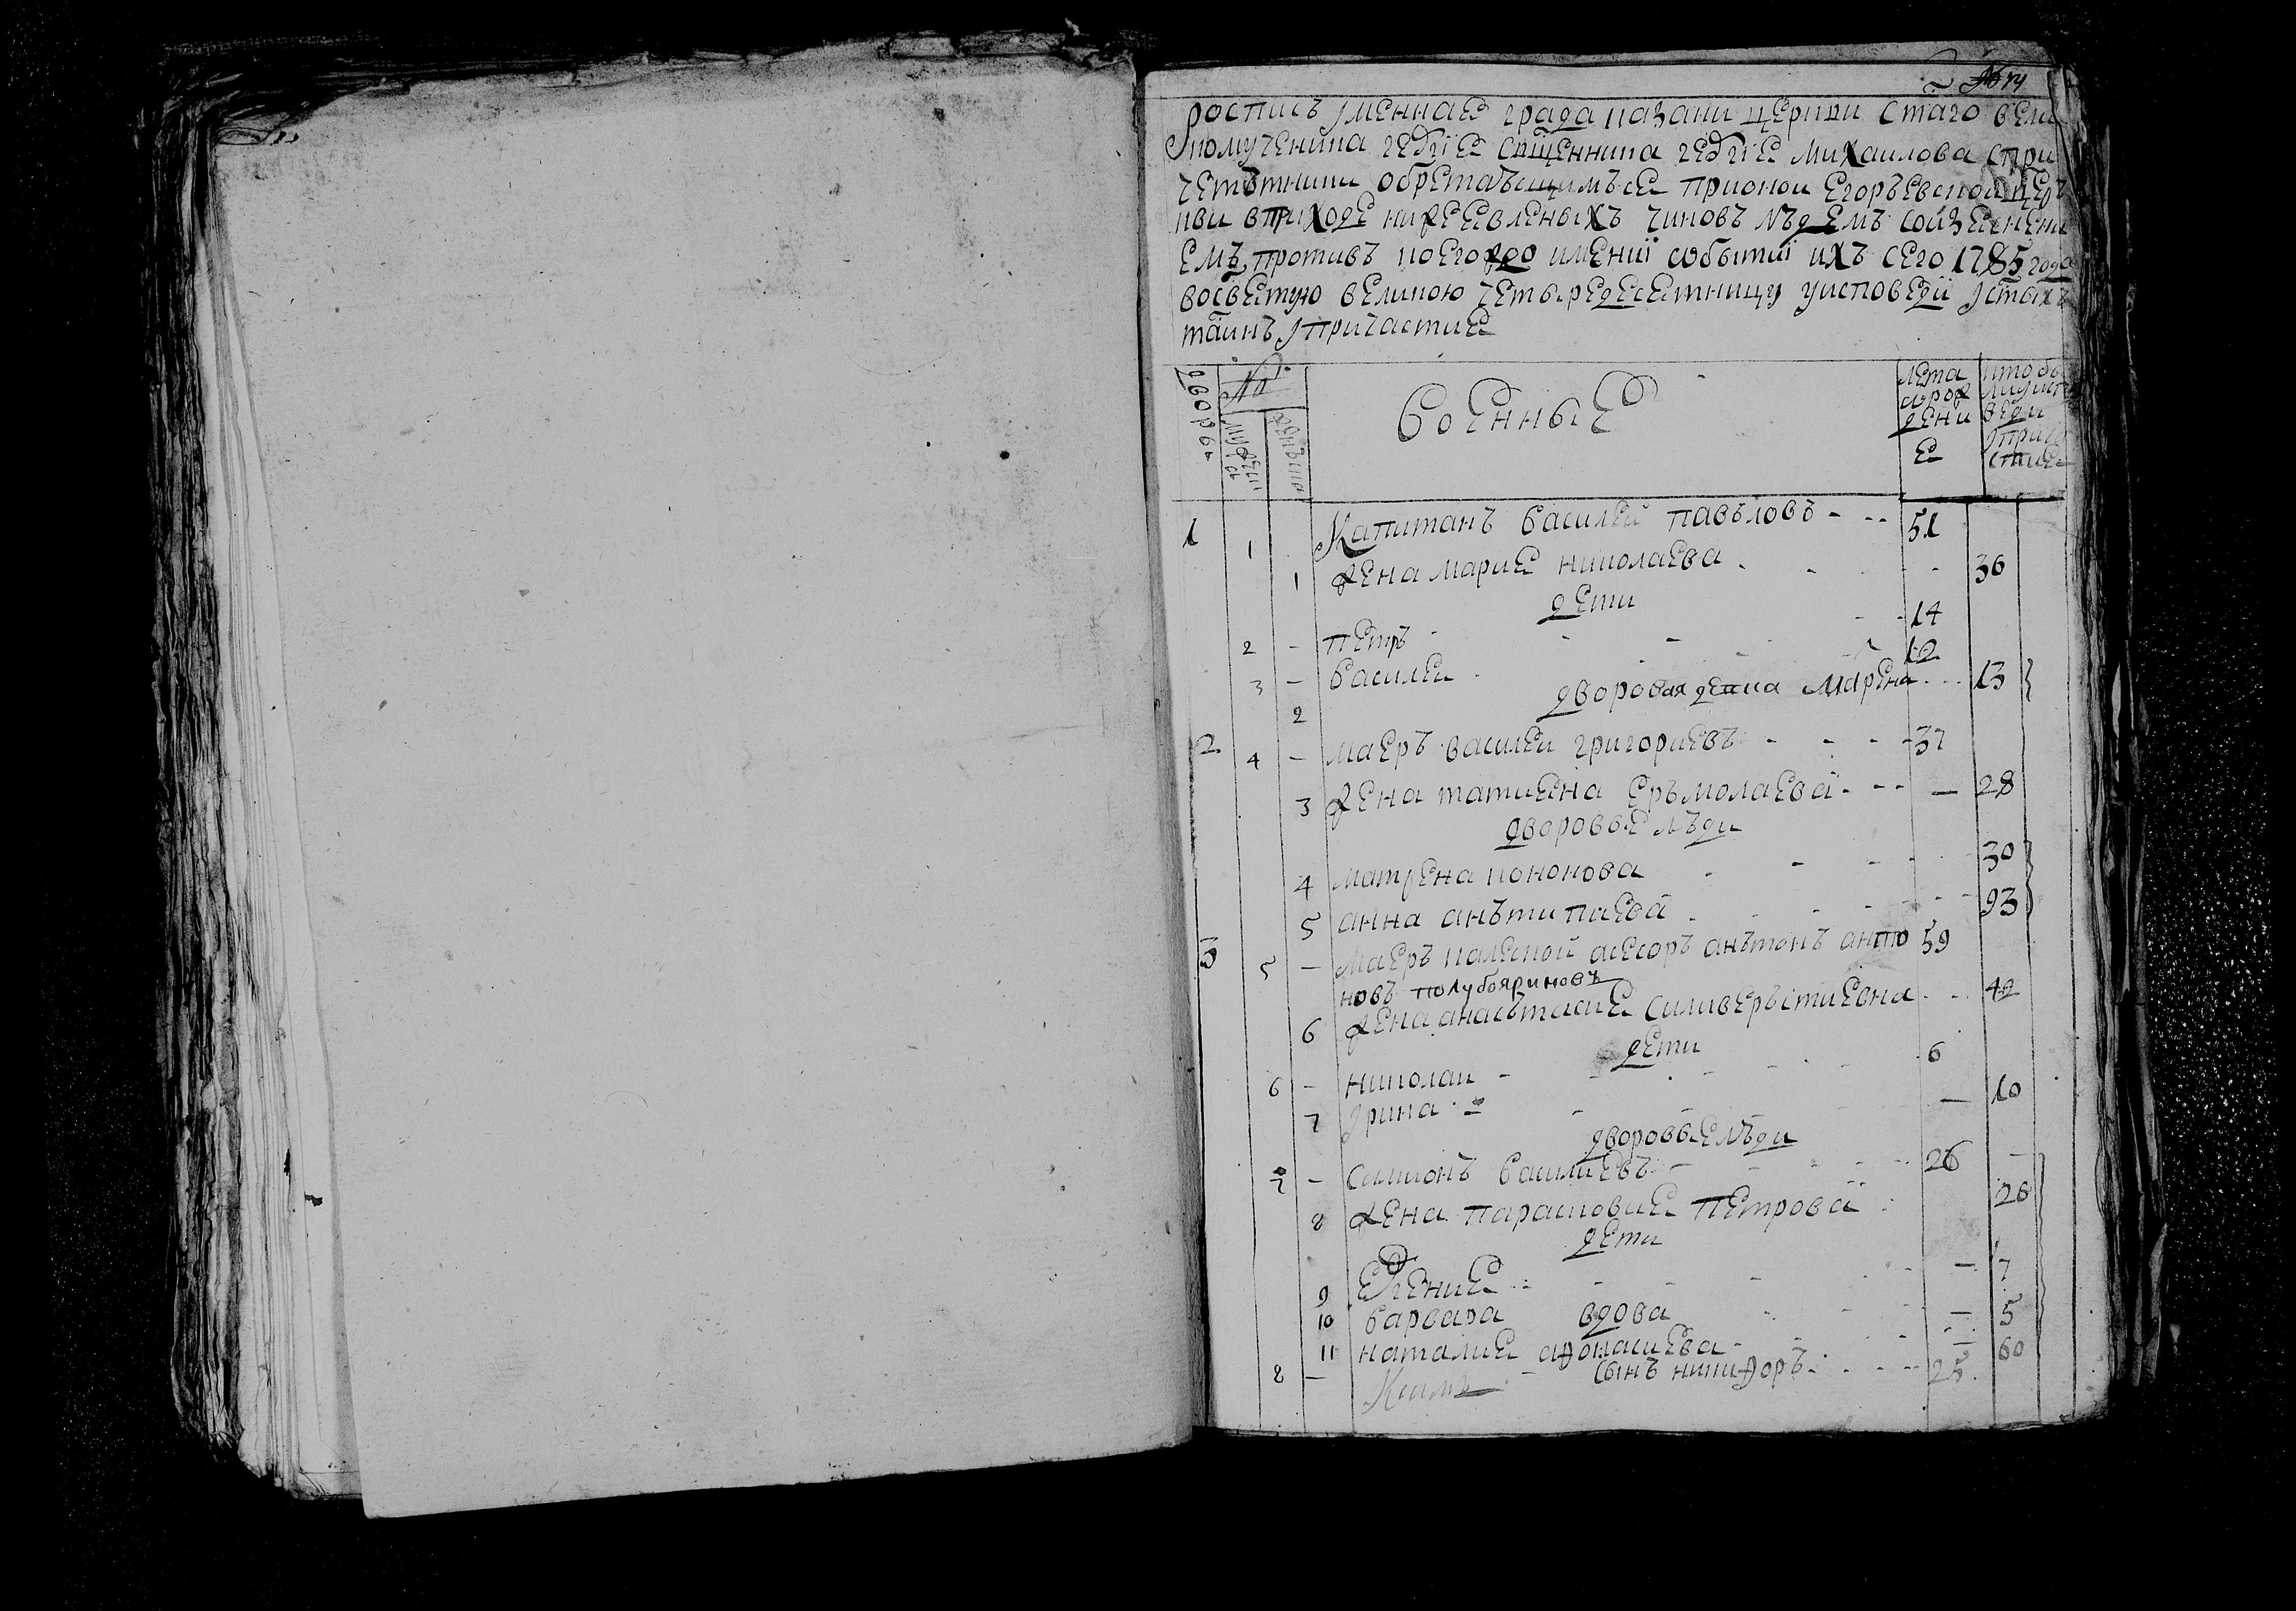 роспись имянная града казани церкви с̃таго вели
комученика геѡргия сщ̃енника геѡргия михаилова спри
четътники обретаъщимъся прионой егоръевской цер
кви вприходе нижеявленыхъ чиновъ лъдемъ соизяснени
емъ противъ коегождо имений событий ихъ сего 1785 года
восвятую великою четыредесятницу уисповеди и с̃тыхъ
таинъ причастия
дворы
№
мужеска
женъска
военные
лета
сърож
дени
я
кто бы
лиуиспо
веди
и прича
стия
1 1 Капитанъ василей павъловъ 51
1 жена мария николаева 36
дети
2 петръ 14
3 василеи 12
2 дворовая девка марена 13
2 4 маеръ василеи григориевъ 37
3 жена татияна еръмолаева 28
дворовые лъди
4 матрена кононова 30
5 анна анътипиева 93
3 5 маеръ колеской асесоръ анътонъ анто 59
новъ полубояриновъ
6 жена анасътасия силиверъстиевна 42
дети
6 николаи 6
7 ирина 10
дворовые лъди
7 симионъ василиевъ 26
8 жена парасковия петрова 28
дети
9 евгения 7
10 варвара 5
вдова
11 наталия афонасиева 60
8 сынъ никифоръ 25